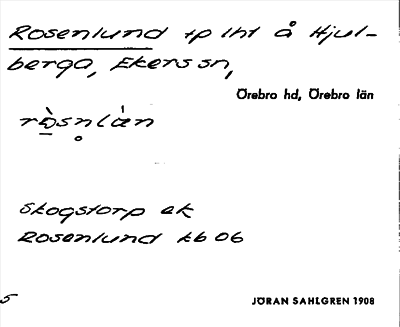 Rosenlund tp lht å Hjul-
berga, Ekers sn,
Örebro hd, Örebro län
rò̱sṇlàn
Skogstorp ek
Rosenlund kb 06
5
JÖRAN SAHLGREN 1908